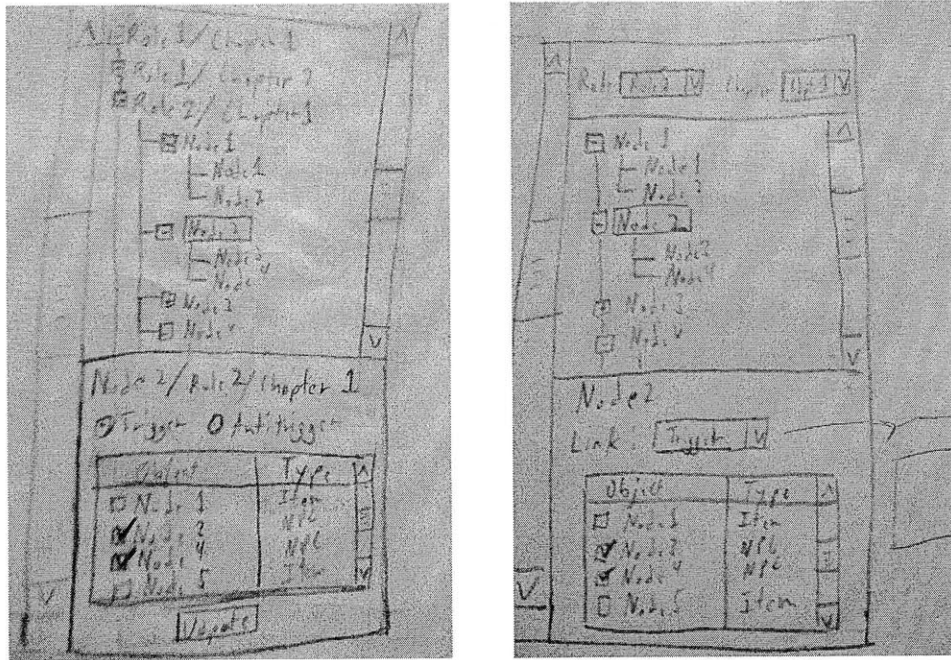 Role 1/Chapter 1
Role 1/Chapter 2
Role 2/Chapter 1
Node 1
Node 1
Node 2
Node 2
Node 2
Node 4
Node 3
Node 4
Node 2/Role 2/Chapter 1
Trigger Antitrigger
Object Type
Node 1 Item
Node 2 NPC
Node 4 NPC
Node 5 Item
Update
Role: Role 2 Chapter:
Node 1
Node 1
Node 2
Node 2
Node 2
Node 4
Node 3
Node 4
Node 2
Link: Trigger
Object Type
Node 1 Item
Node 2 NPC
Node 4 NPC
Node 5 Item